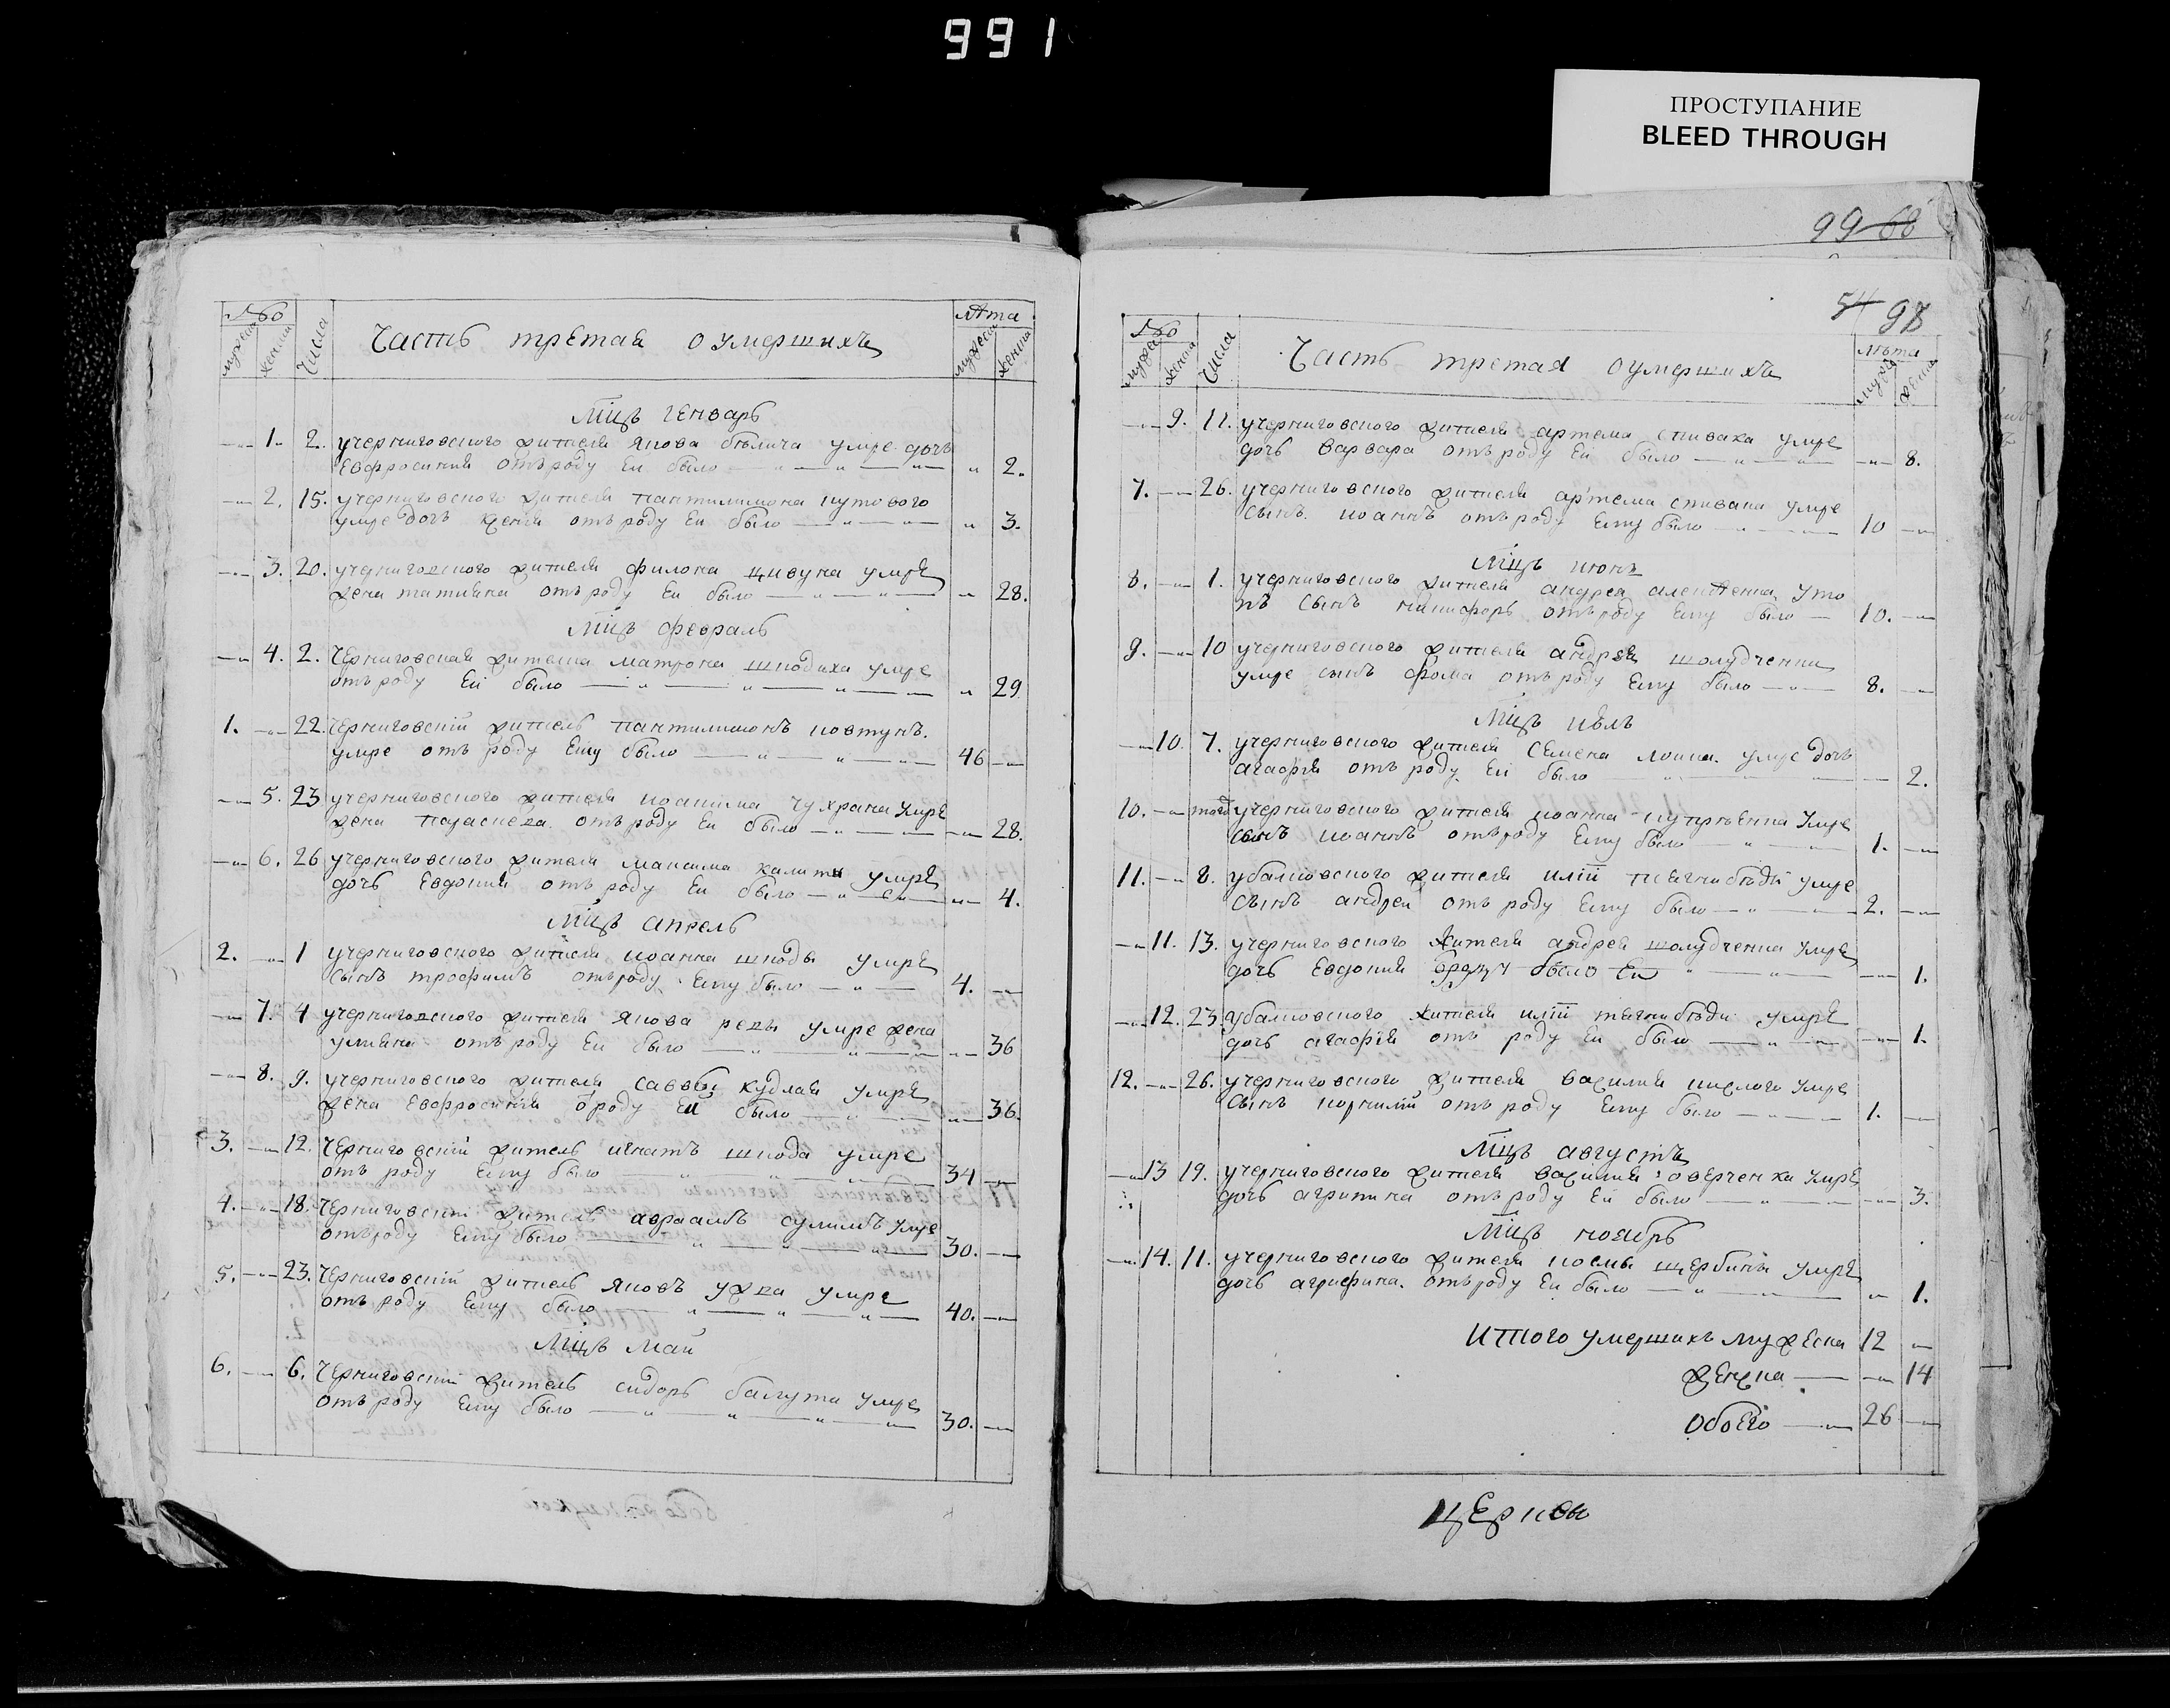 991
ПРОСТУПАНИЕ
BLEED THROUGH
99 68
№о
мужеска
женска
Числа
Часть третая о умершихъ
лѣта
мужеска
женска
Мцъ генварь
1. 2. учерниговского жителя якова бѣлича умре дочь
евфросиния отъ роду ей было 2.
2. 15. учерниговского жителя пантилимона кутового
умре дочь ксения отъ роду ей было 3.
3. 20. учерниговского жителя филона цивуна умре
жена татияна отъ роду ей было 28.
Мцъ февраль
4. 2. Черниговская матрона шкодиха умре
отъ роду ей было 29
1. 22. Черниговский житель пантилимонъ ковтунъ
умре отъ роду ему было 46
5. 23 учерниговского жителя иоакима чухрана умре
жена параскева отъ роду ей было 28.
6. 26 учерниговского жителя максима калиты умре
дочь евдокия отъ роду ей было 4.
Мцъ апрель
2. 1 учерниговского жителя иоанна шкоды умре
сынъ трофимъ отъ роду ему было 4.
7. 4 учерниговского жителя якова умре жена
улияна отъ роду ей было 36
8. 9. учерниговского жителя саввы кудлая умре
жена евфросиния ороду ей было 36.
3. 12. Черниговский житель игнатъ шкода умре
отъ роду ему было 34
4. 18. Черниговский житель авраамъ сулимъ умре
отъ роду ему было 30.
5. 23. Черниговский житель яковъ умре
отъ роду ему было 40.
Мцъ май
6. 6. Черниговский житель сидоръ балута умре
отъ роду ему было 30.
54 98
№о
мужеска
женска
Числа
Часть третая оумершихъ
лѣта
мужеска
женска
9. 11. учерниговского жителя артема спивака умре
дочь варвара отъ роду ей было 8.
7. 26. учерниговского жителя артема спивака умре
сынъ иоаннъ отъ роду ему было 10
Мцъ июнь
8. 1. учерниговского жителя андрея уто
пъ сынъ никифоръ отъ роду ему было 10.
9. 10 учерниговского жителя андрея шолудченка
умре сынъ фома отъ роду ему было 8.
Мцъ июль
10. 7. учерниговского жителя семена умре дочь
агафия отъ роду ей было 2.
10. учерниговского жителя иоанна умре
сынъ иоаннъ отъ роду ему было 1.
11. 8. жителя илии умре
сынъ андрей отъ роду ему было 2.
11. 13. учерниговского жителя андрея шолудченка умре
дочь евдокия было ей 1.
12. 23 жителя илии умре
дочь агафия отъ роду ей было 1.
12. 26. учерниговского жителя василия кислого умре
сынъ корнилий отъ роду ему было 1.
Мцъ августъ
13 19. учерниговского жителя василия оверченка умре
дочь агрипина отъ роду ей было 3.
Мцъ ноябрь
14. 11. учерниговского жителя космы щербины умре
дочь агрифина отъ роду ей было 1.
Итого умершихъ мужеска 12
женска 14
обоего 26
церквы